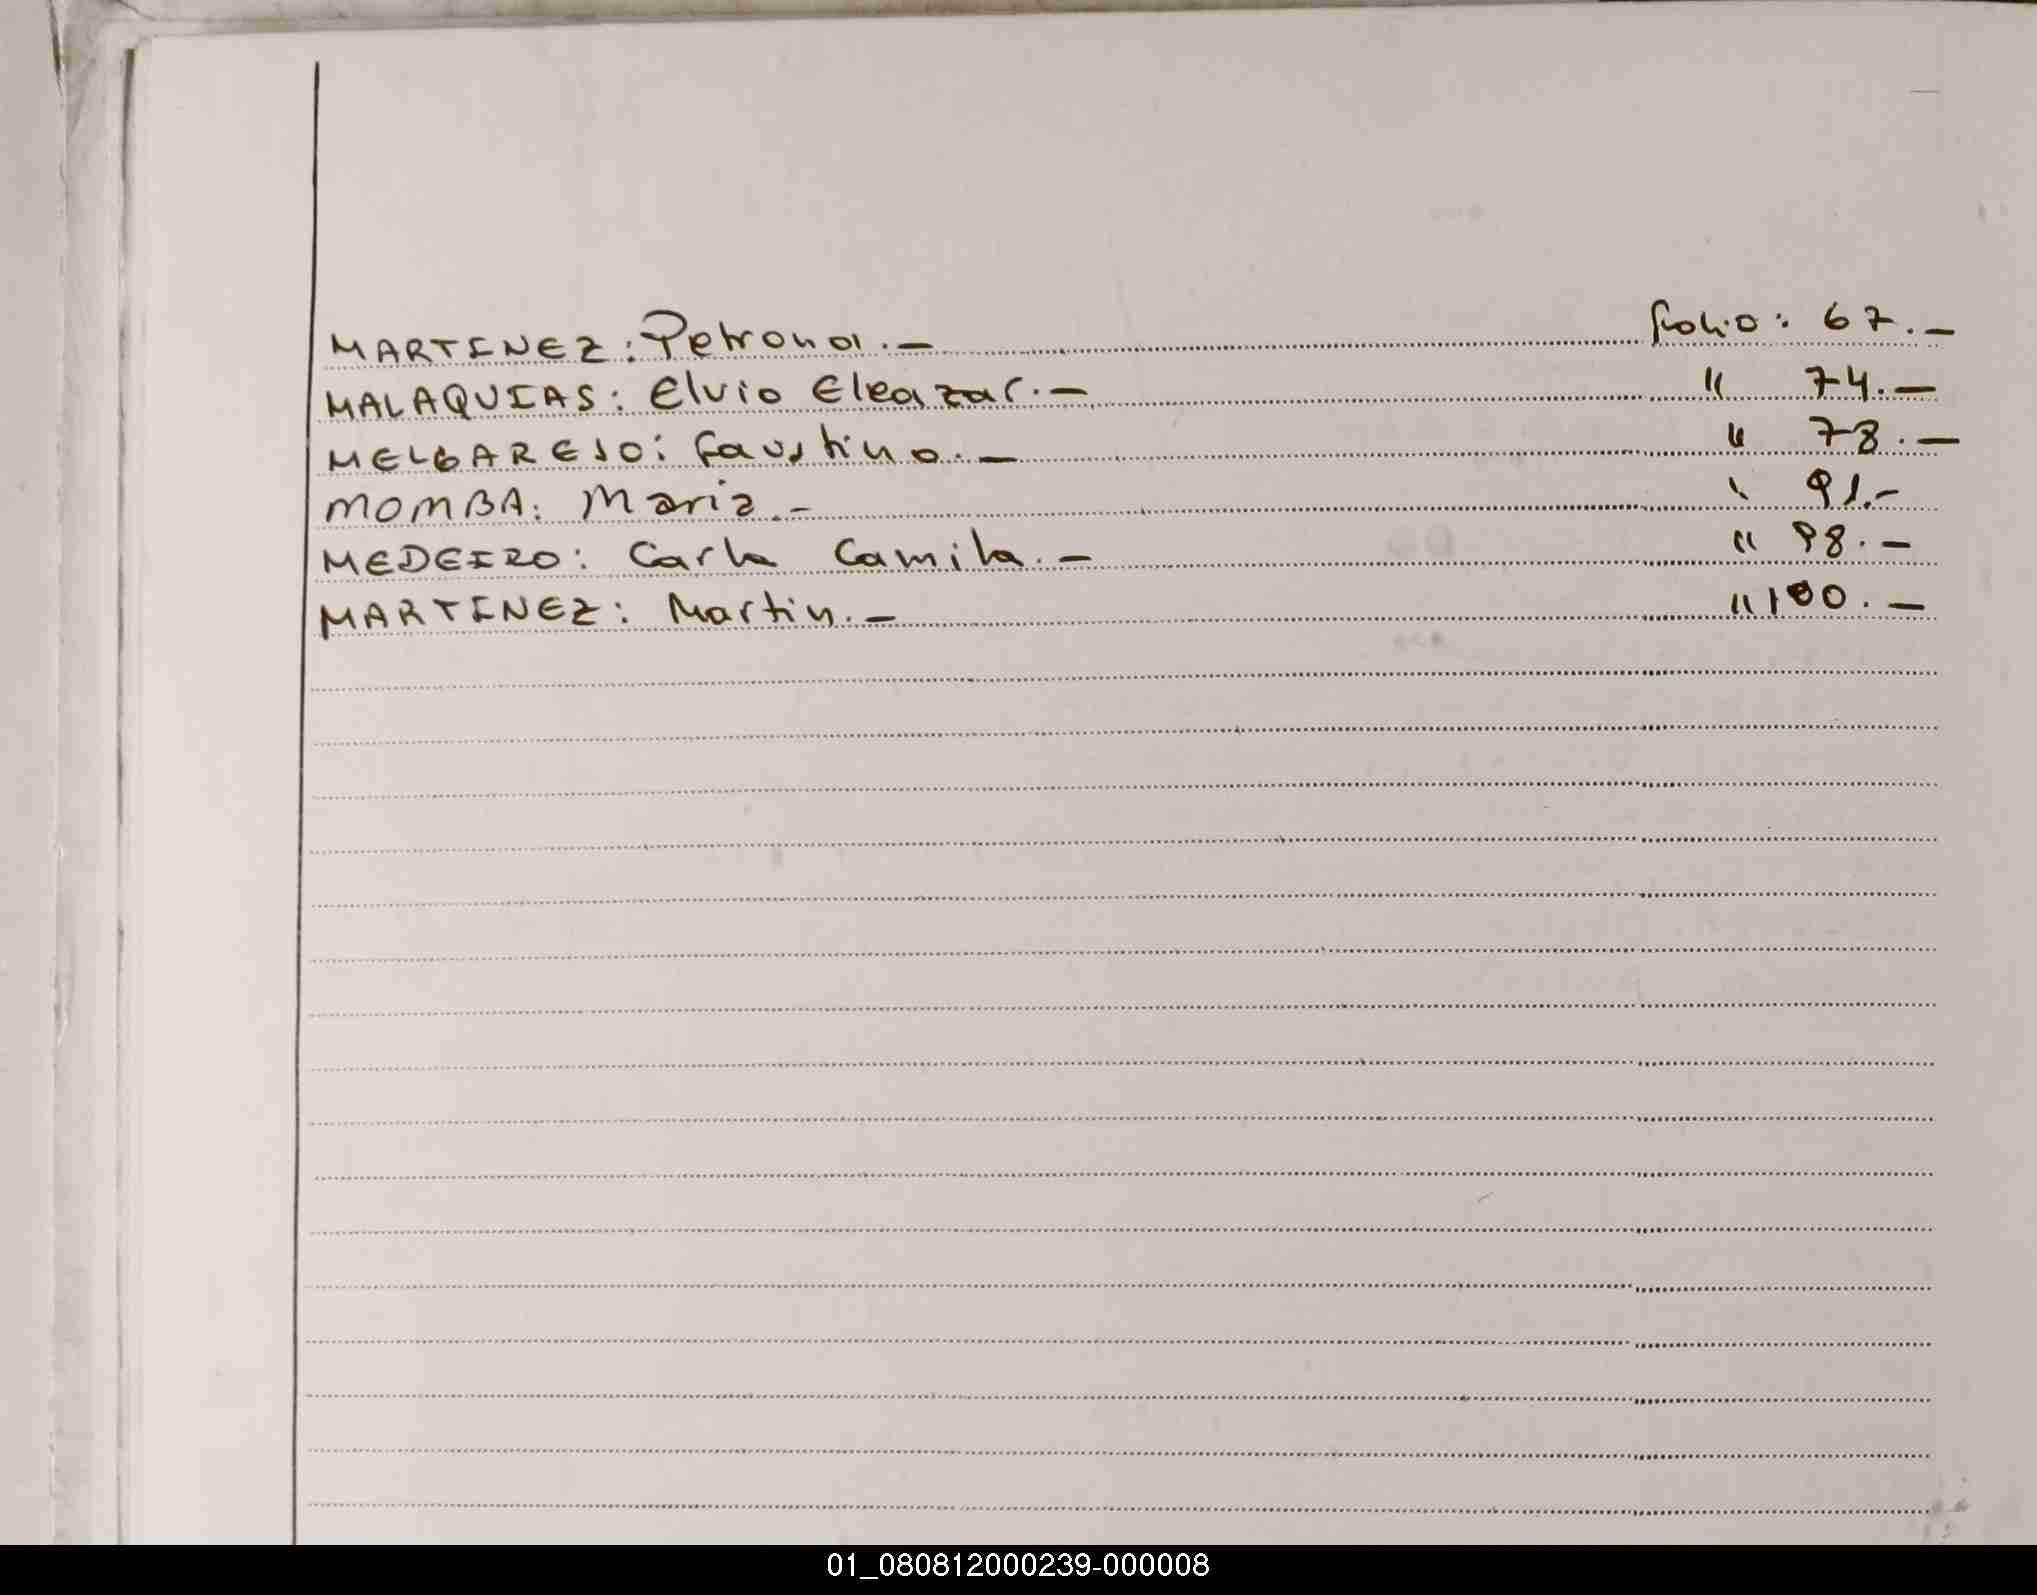 MARTINEZ: Petrona.— folio: 67.—
MALAQUIAS: Elvio Eleazar.— " 74.—
MELGAREJO: Faustino.— " 78.—
MOMBA: Maria.— " 91.—
MEDEIRO: Carla Camila.— " 98.—
MARTINEZ: Martin.— " 100.—
01_080812000239-000008